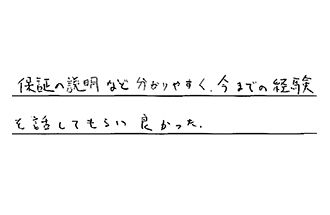 保証の説明など分かりやすく、今までの経験
を話してもらい良かった.